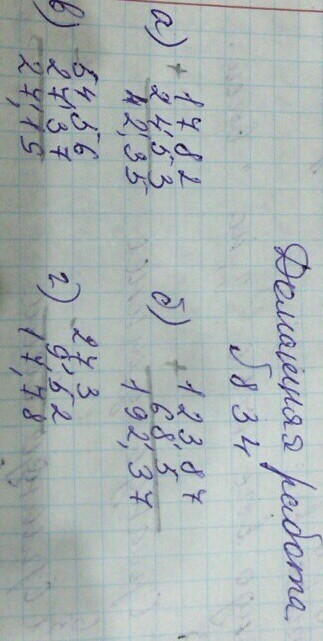 Домашняя работа.
№ 834
а) + 17,82
24,53
42,35
б) + 123,87
68,5
192,37
в) - 54,56
27,37
27,19
г) - 27,3
9,52
17,78